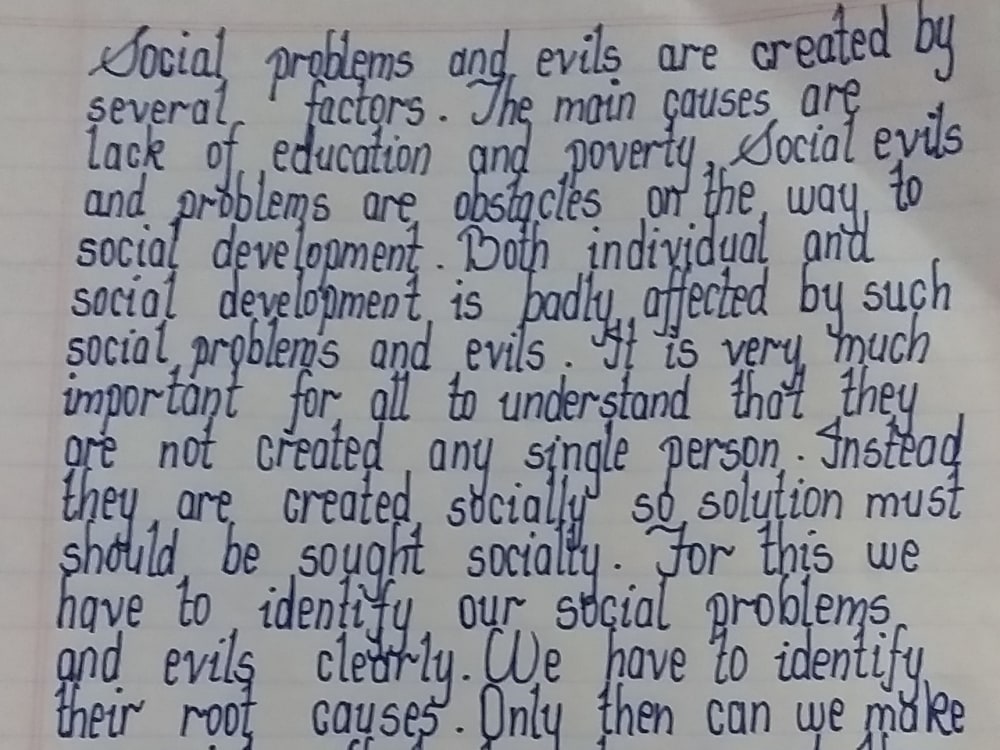 Social problems and evils are created by
several factors. The main causes are
lack of education and poverty, Social evils
and problems are obstacles on the way to
social development. Both individual and
social development is badly affected by such
social problems and evils. It is very much
important for all to understand that they
are not created any single person. Instead
they are created socially so solution must
should be sought socially. For this we
have to identify our social problems
and evils clearly. We have to identify
their root causes. Only then can we make